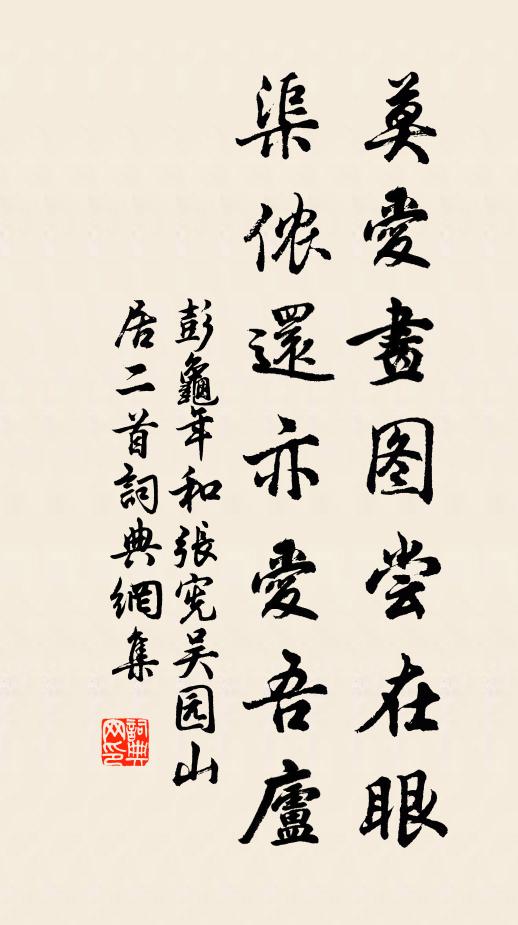 莫愛畫图尝在眼
渠侬還亦愛吾廬
彭龜年和張宪吴园山
居二首詞典網集
詞典
网印